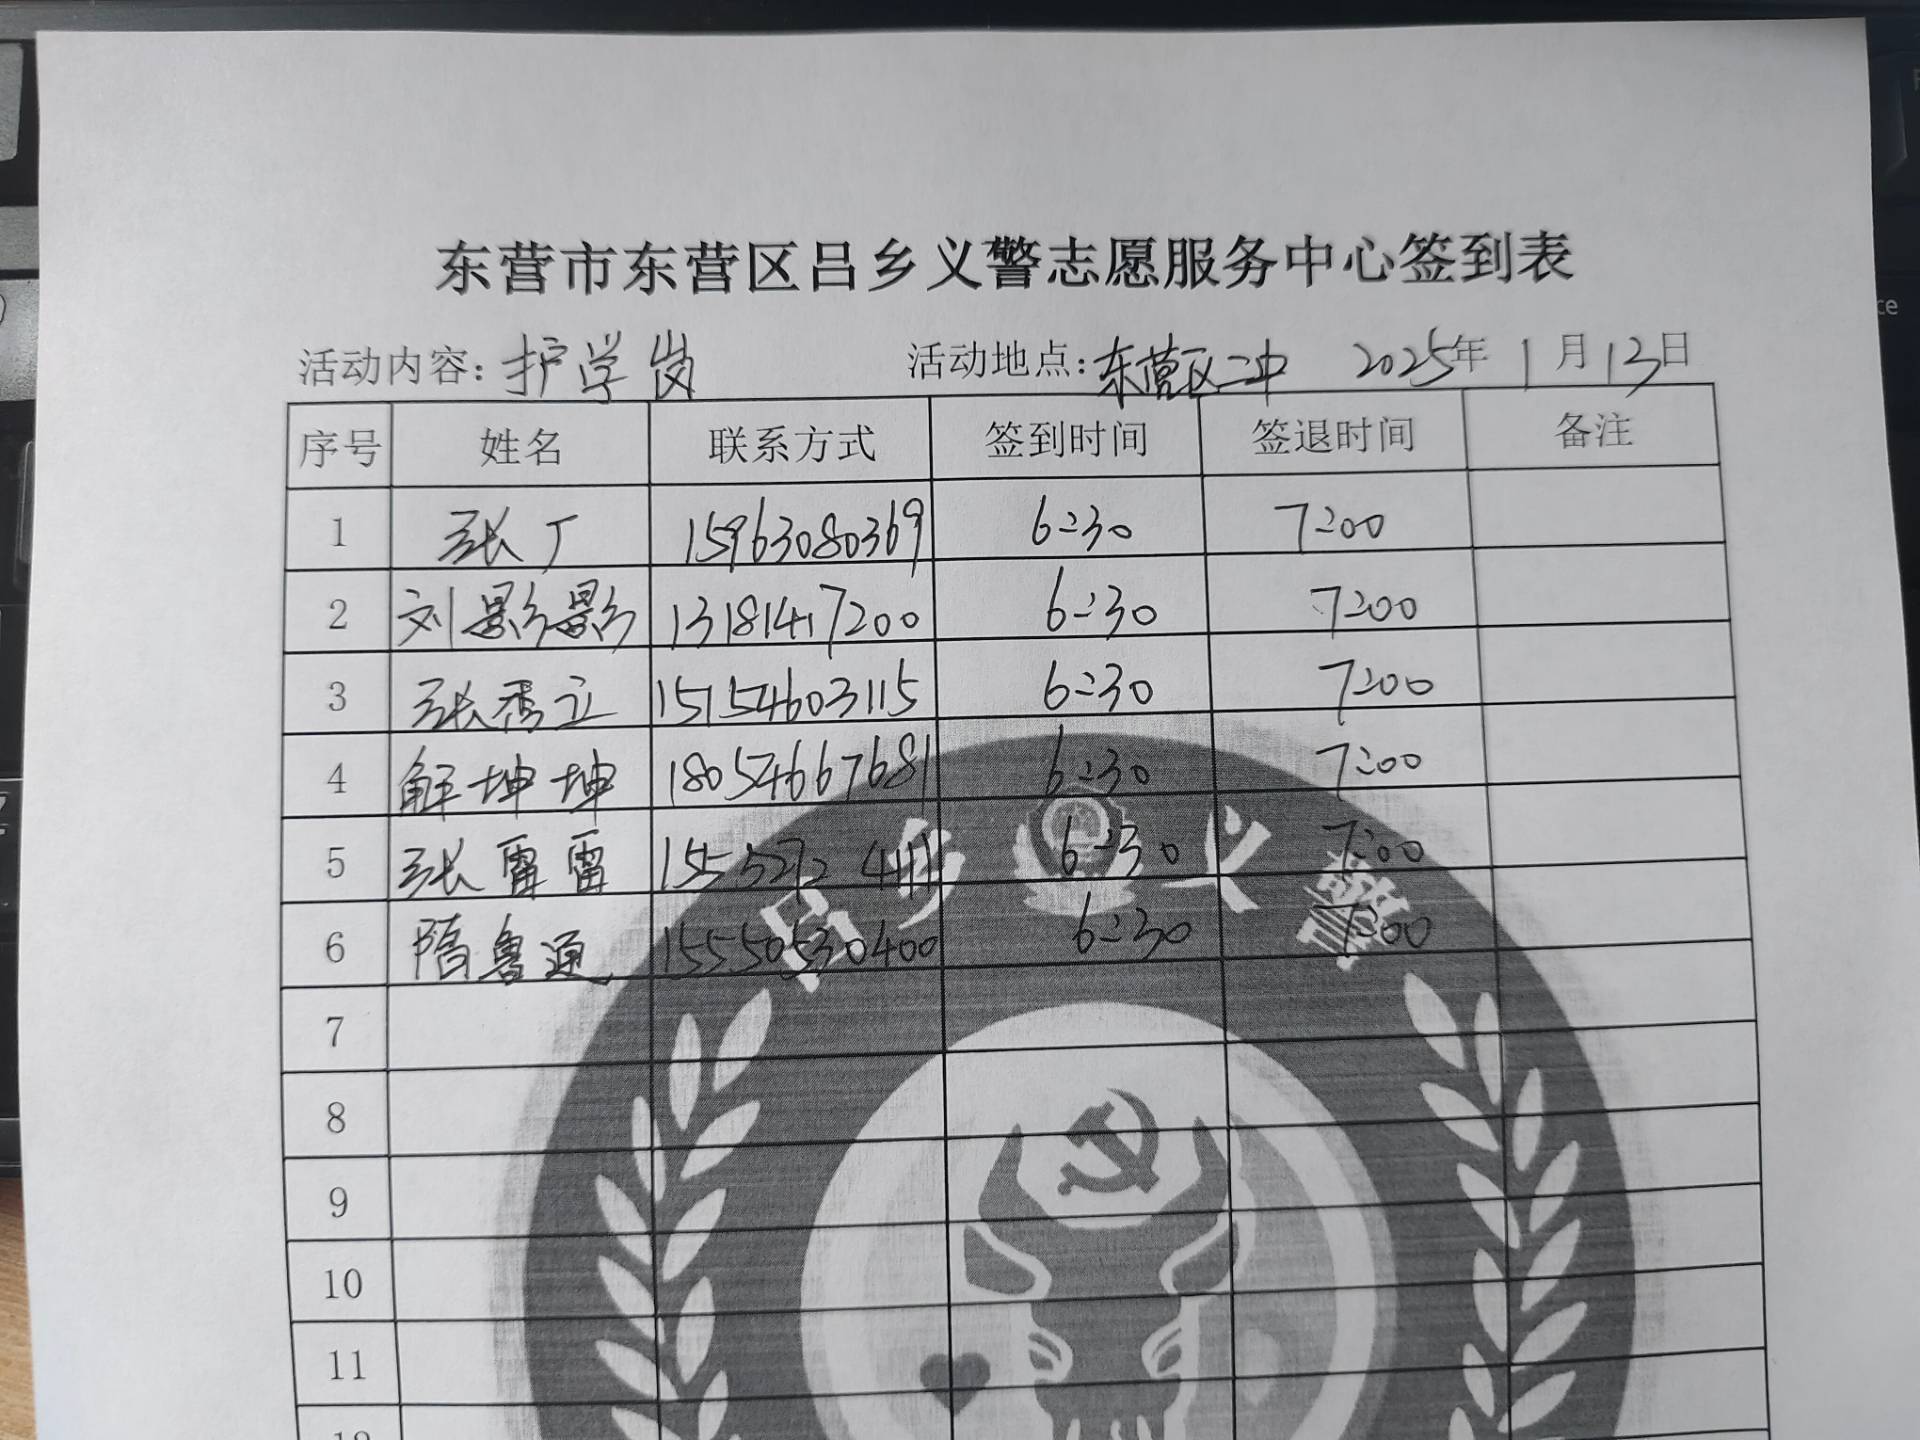 东营市东营区吕乡义警志愿服务中心签到表
活动内容：护学岗 活动地点：东营区二中 2025年1月13日
序号 姓名 联系方式 签到时间 签退时间 备注
1 张广 15963080369 6:30 7:00
2 刘影影 13181417200 6:30 7:00
3 张秀立 15154603115 6:30 7:00
4 解坤坤 18054667681 6:30 7:00
5 张雷雷 6:30 7:00
6 隋鲁通 15550530400 6:30 7:00
吕乡义警
7
8
9
10
11